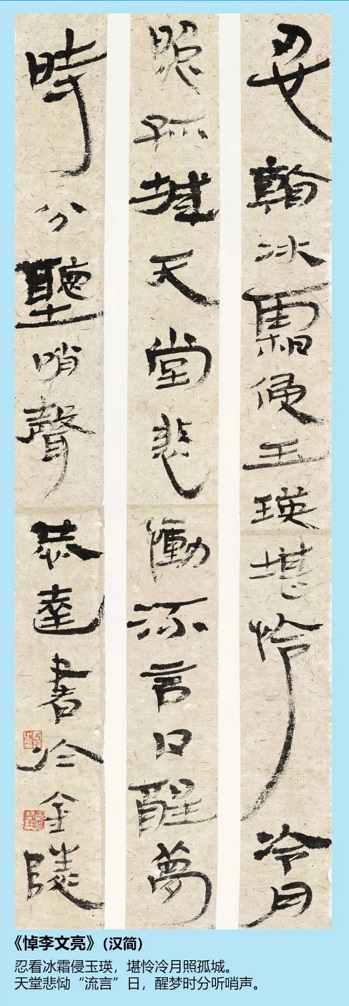 忍看冰霜侵玉瑛堪怜冷月
照孤城天堂悲慟流言日醒夢
時分聽哨聲恭達書於金陵
《悼李文亮》(汉简)
忍看冰霜侵玉瑛，堪怜冷月照孤城。
天堂悲恸“流言”日，醒梦时分听哨声。